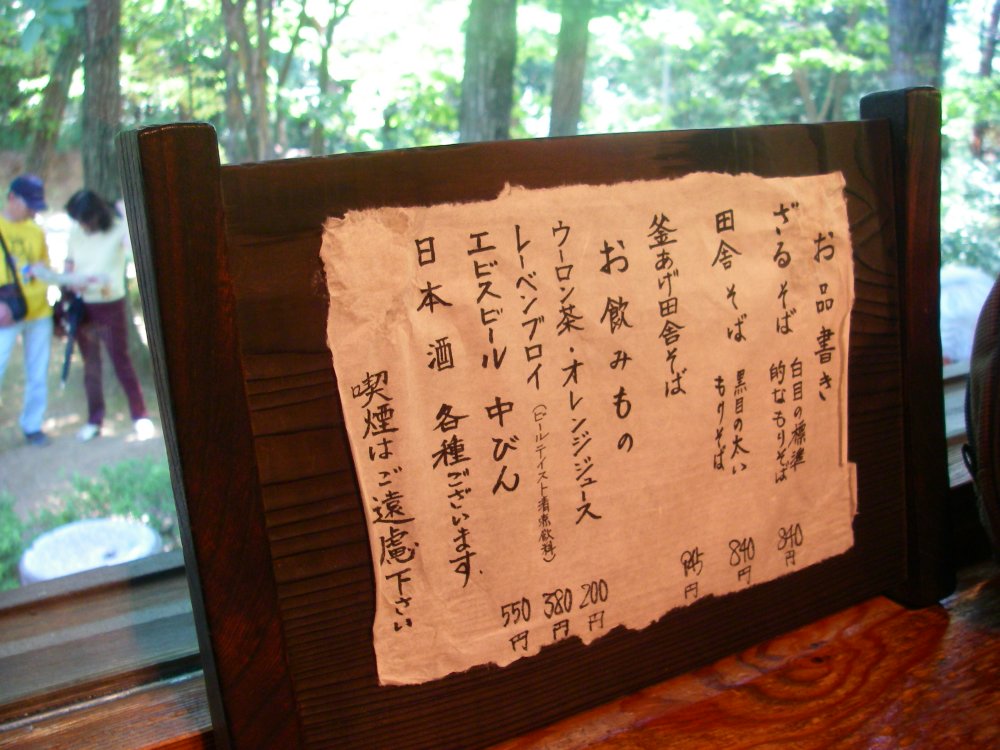 お品書き
ざるそば 白目の標準的なもりそば 840円
田舎そば 黒目の太いもりそば 840円
釜あげ田舎そば 945円
お飲みもの
ウーロン茶・オレンジジュース 200円
レーベンブロイ (ビールテイスト清涼飲料) 380円
エビスビール 中びん 550円
日本酒 各種ございます.
喫煙はご遠慮下さい